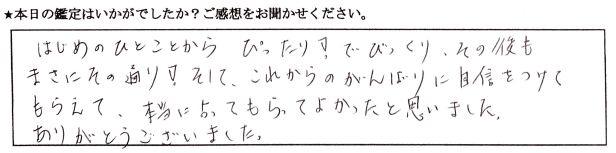 ★本日の鑑定はいかがでしたか？ご感想をお聞かせください。
はじめのひとことから ぴったり！でびっくり、その後も
まさにその通り！そして、これからのがんばりに自信をつけて
もらえて、本当に占ってもらってよかったと思いました。
ありがとうございました。